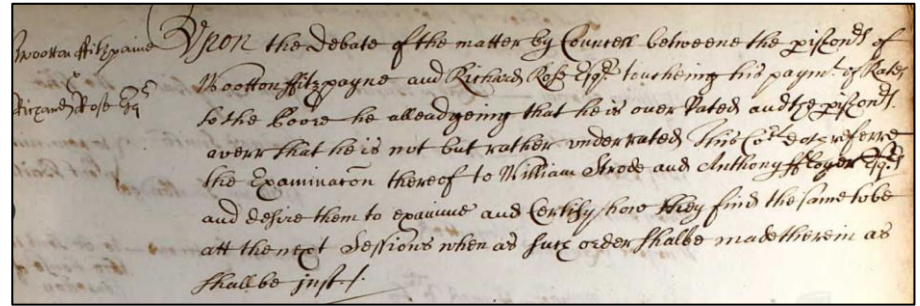 Wootton ffitzpaine
Richard Rose Esqr
Upon the Debate of the matter by Councell betweene the pishon[rs] of
Wootton ffitzpayne and Richard Rose Esqr toucheing his paymt. of Rates
to the Poore he alleadgeing that he is over Rated and the pishon[rs].
averr that he is not but rather underrated This Cot. doth referre
the Examinacon thereof to William Strode and Anthony ffloyer Esqrs
and desire them to examine and Certify how they find the same to be
att the next Sessions when as such order shalbe made therein as
shall be just /.